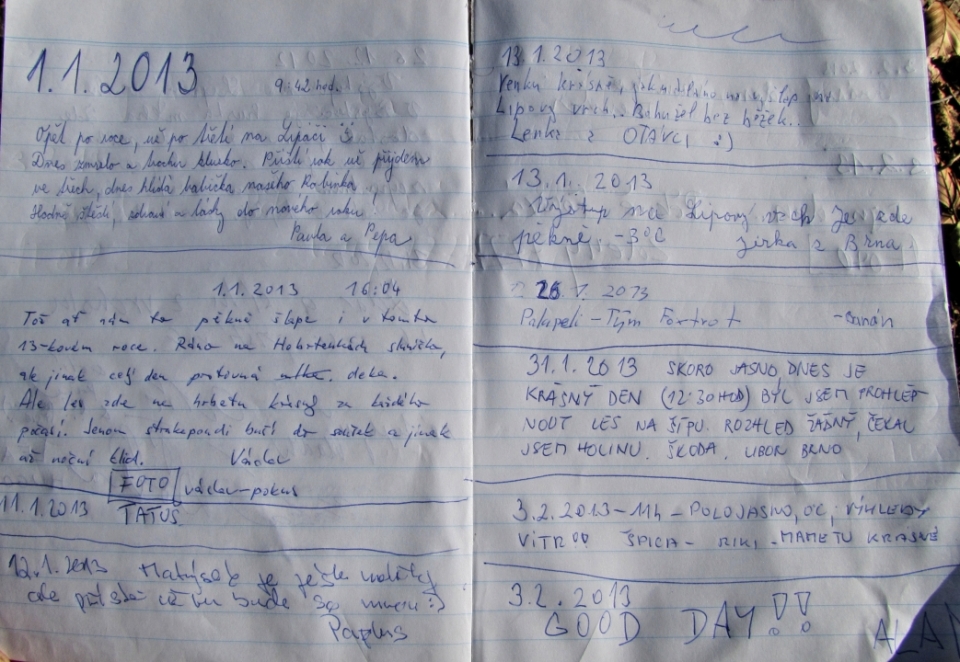 1.1.2013
9:42 hod.
Opět po roce, už po třetí na Lipáči :)
Dnes zmrzlo a trochu klouzko. Příští rok už přijdeme
ve třech, dnes hlídá babička našeho Robínka
Hodně štěstí, zdraví a lásky do nového roku!
Pavla a Pepa
1.1.2013 16:04
Tož ať nám to pěkně šlape i v tomto
13-kovém roce. Ráno na sluníčko,
ak jinak celý den protivná deka.
Ale les zde na hřbetu krásný za každého
počasí. Jenom strakapoudi buší do soušek a jinak
až noční klid. Václav
FOTO václav-pokus
11.1.2013 TATUŠ
12.1.2013 je ještě
ale příště už tu bude se mnou :)
13.1.2013
Venku krásně,
Lipový vrch.. Bohužel bez běžek..
Lenka z OTAVCI, :)
13.1. 2013
Výstup na Lipový vrch je jade
pěkně, -3°C Jirka z Brna.
26.1. 2013
- Tým Foxtrot
31.1.2013 SKORO JASNO, DNES JE
KRÁSNÝ DEN (12:30HOD) BYL JSEM PROHLÉD
NOUT LES NA ŠÍPU. ROZHLED ŽÁDNÝ, ČEKAL
JSEM HOLINU. ŠKODA. LIBOR BRNO
3.2.2013-11h - POLOJASNO, 0C, VÝHLEDY
VITR!! ŠPICA - RIKI, - MAMETU KRÁSNĚ
3.2.2013
GOOD DAY!!
ALAN